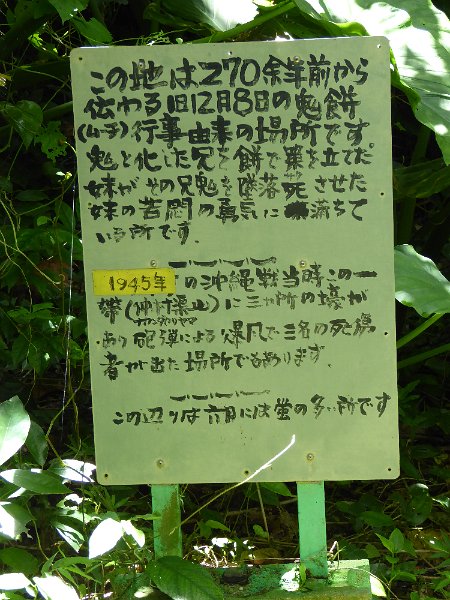 この地は270余年前から
伝わる旧12月8日の鬼餅
(ムーチー)行事由来の場所です。
鬼と化した兄を餅で策を立てた。
妹がその兄鬼を墜落死させた
妹の苦悶の勇気に満ちて
いる所です。
1945年の沖縄戦当時この一
帯(仲村渠山)に三ヶ所の壕が
ナカンダカリヤマ
あり砲弾による爆風で三名の死傷
者が出た場所でもあります。
この辺りは六月には蛍の多い所です